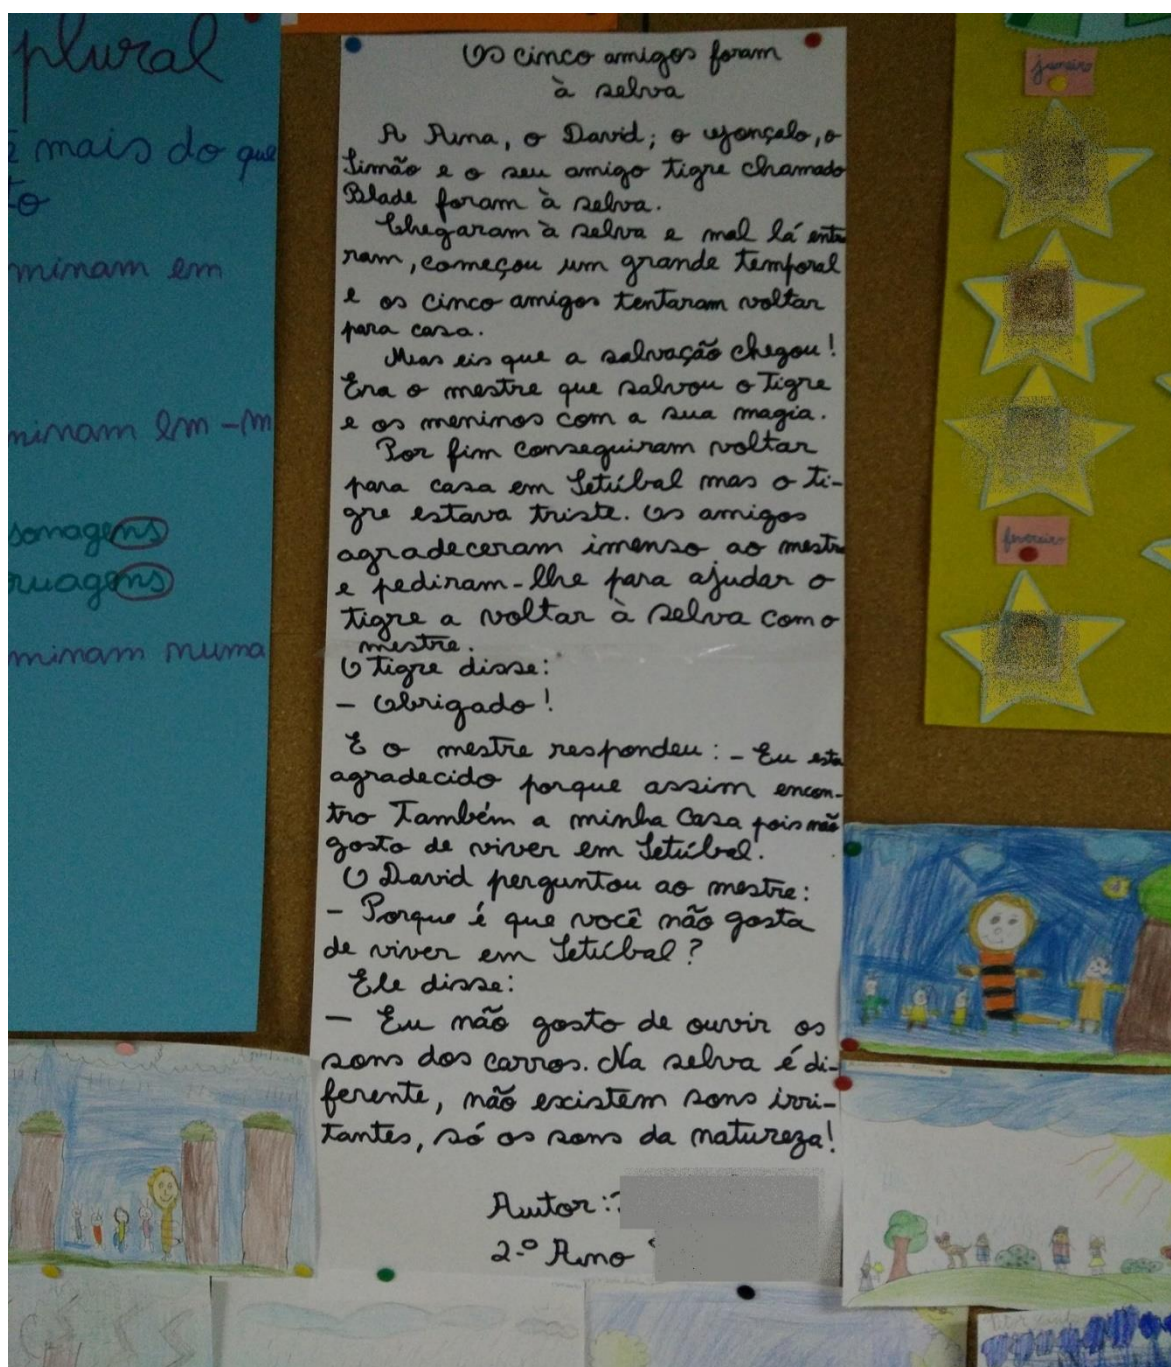 plural
mais do que
minam em
minam em -m
sonagens
ruagens
minam numa
Os cinco amigos foram
à selva
A Ana, o David; o Gonçalo, o
Simão e o seu amigo tigre chamado
Blade foram à selva.
Chegaram à selva e mal lá entra
ram, começou um grande temporal
e os cinco amigos tentaram voltar
para casa.
Mas eis que a salvação chegou!
Era o mestre que salvou o tigre
e os meninos com a sua magia.
Por fim conseguiram voltar
para casa em Setúbal mas o ti-
gre estava triste. Os amigos
agradeceram imenso ao mestre
e pediram-lhe para ajudar o
tigre a voltar à selva com o
mestre.
O tigre disse:
- Obrigado!
E o mestre respondeu: - Eu esta
agradecido porque assim encon-
tro também a minha casa pois não
gosto de viver em Setúbal.
O David perguntou ao mestre:
- Porque é que você não gosta
de viver em Setúbal?
Ele disse:
- Eu não gosto de ouvir os
sons dos carros. Na selva é di-
ferente, não existem sons irri-
tantes, só os sons da natureza!
Autor:
2.º Ano
janeiro
fevereiro